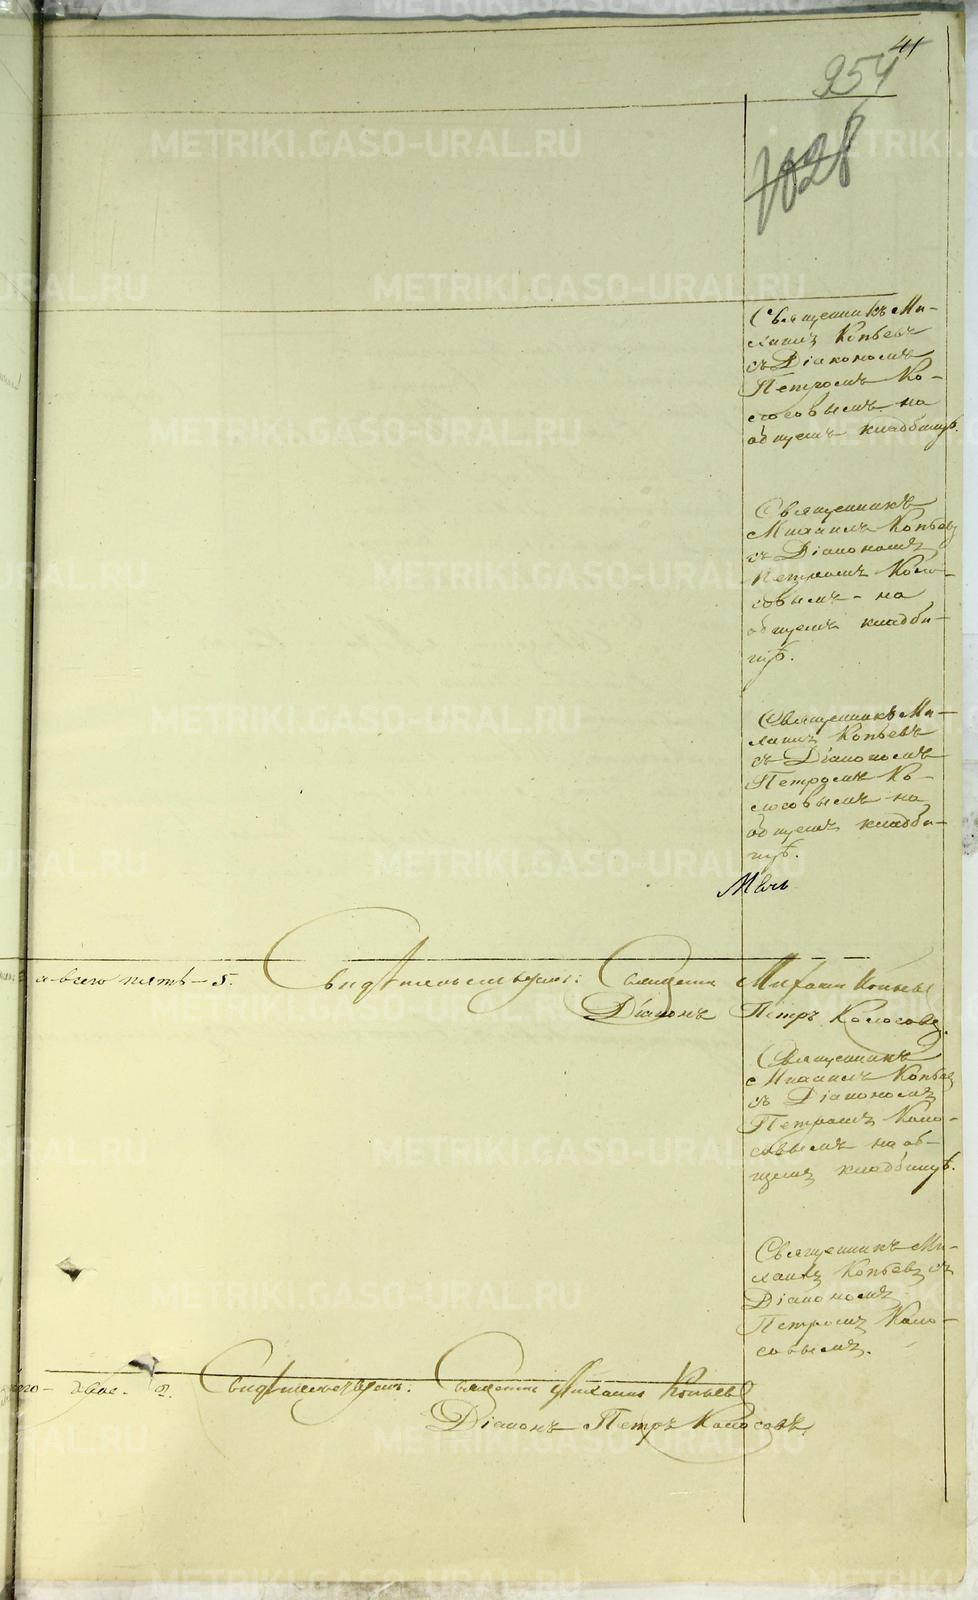 41
954
1028
Священникъ Ми-
хаилъ Копьевъ
съ Діакономъ
Петромъ Ко-
лосовымъ на
общемъ кладбищѣ.
Священникъ
Михаилъ Копьевъ
съ Діакономъ
Петромъ Коло-
совымъ - на
общемъ кладби-
щѣ.
Священникъ Ми-
хаилъ Копьевъ
съ Діакономъ
Петромъ Ко-
лосовымъ на
общемъ кладби-
щѣ.
а всего пять - 5. Свидѣтельствуютъ: Священникъ Михаилъ Копьевъ
Діаконъ Петръ Колосовъ.
Священникъ
Михаилъ Копьевъ
съ Діакономъ
Петромъ Коло-
совымъ на об-
щемъ кладбищѣ.
Священникъ Ми-
хаилъ Копьевъ съ
Діакономъ
Петромъ Коло-
совымъ.
двое. 2. Свидѣтельствуютъ. Священникъ Михаилъ Копьевъ
Діаконъ Петръ Колосовъ.
METRIKI.GASO-URAL.RU